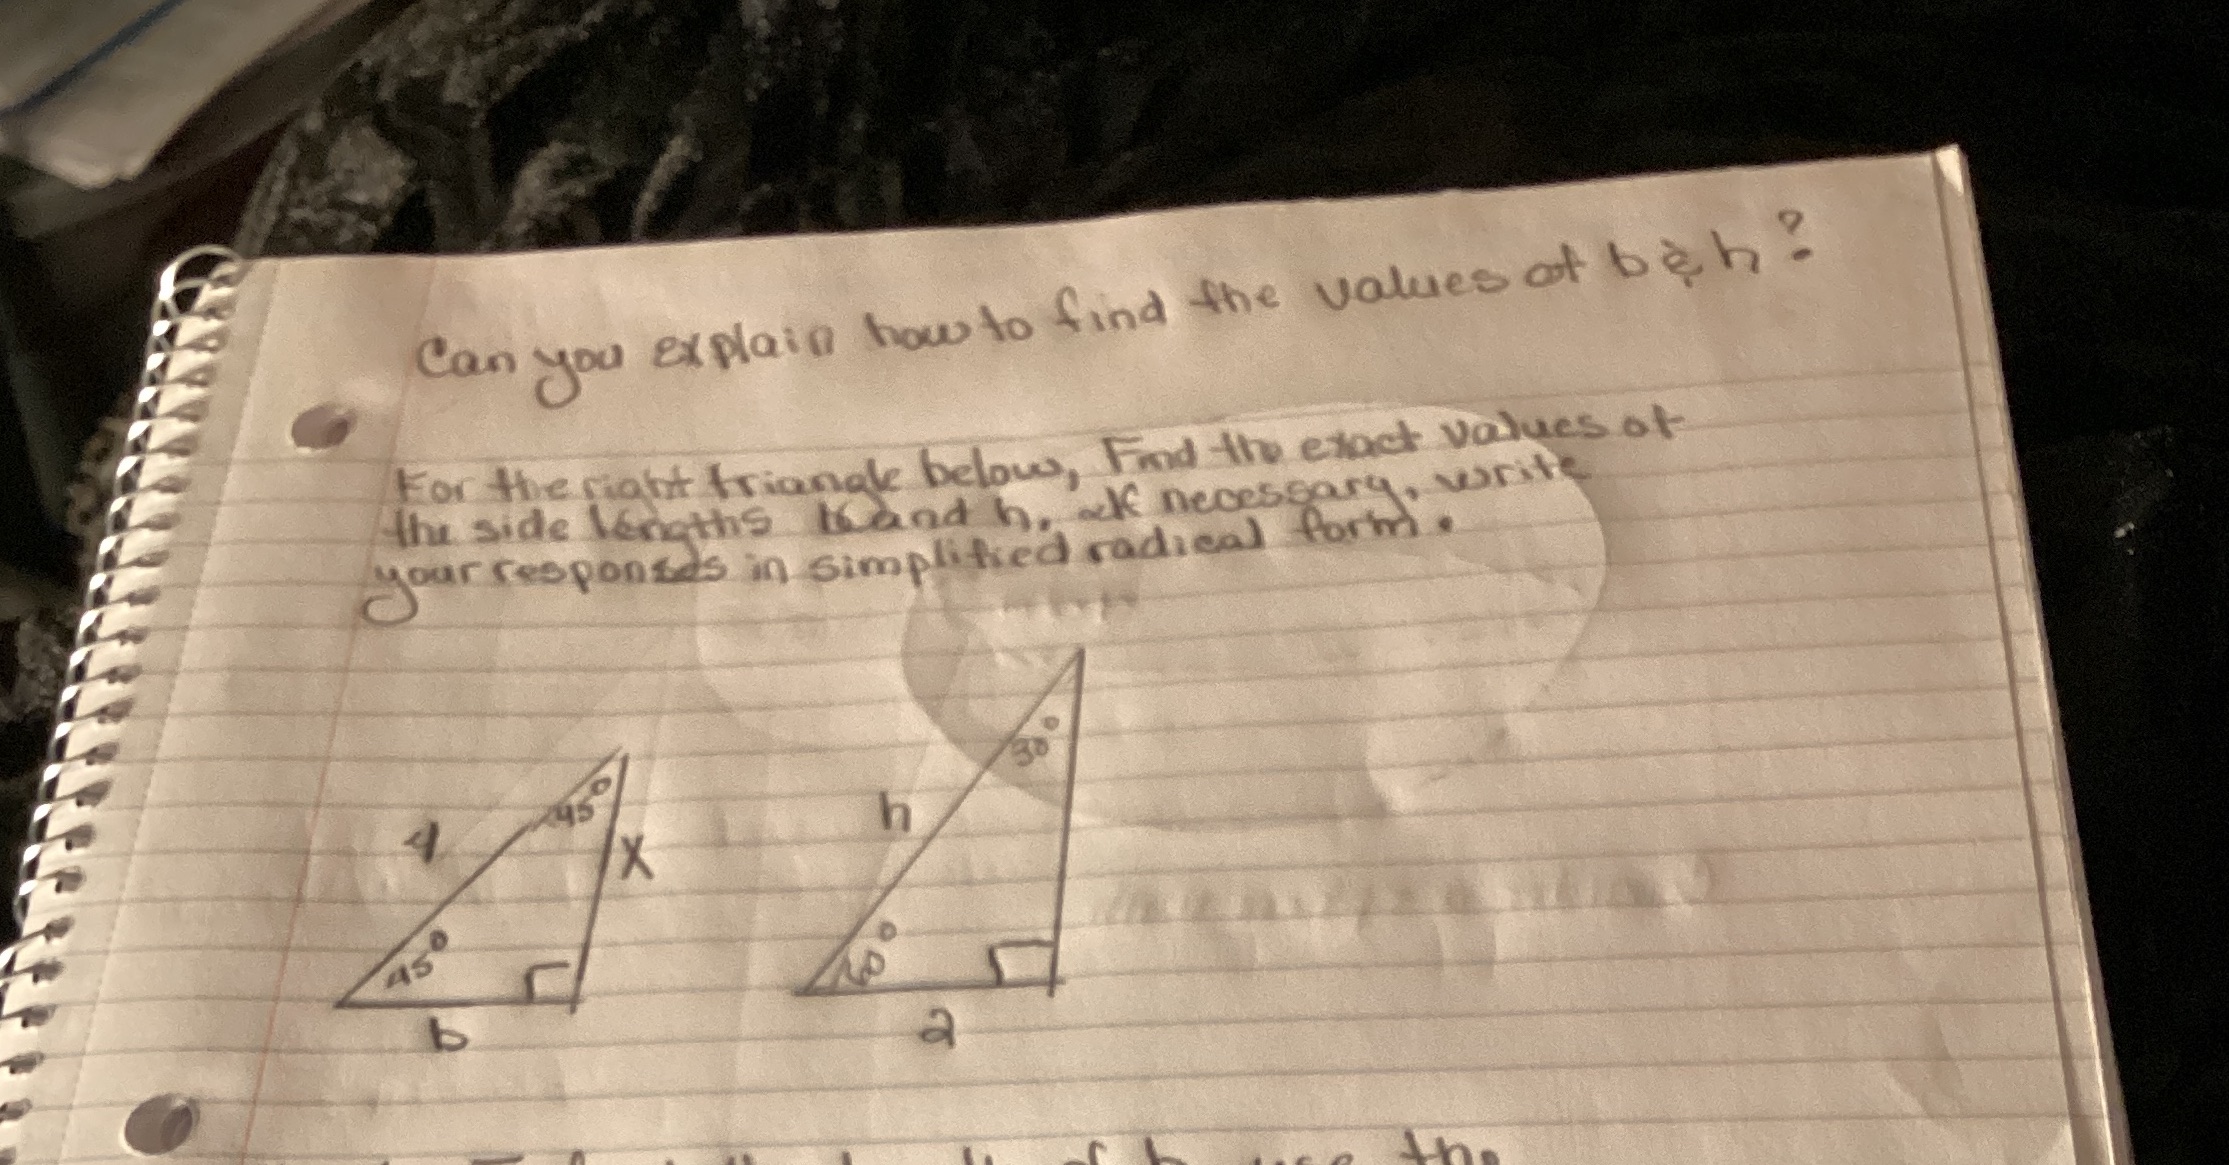 Can you explain how to find the values of b & h?
For the right triangle below, Find the exact values of
the side lengths b and h. If necessary, write
your responses in simplified radical form.
30°
45°
h
4
X
45°
60°
b
2
the